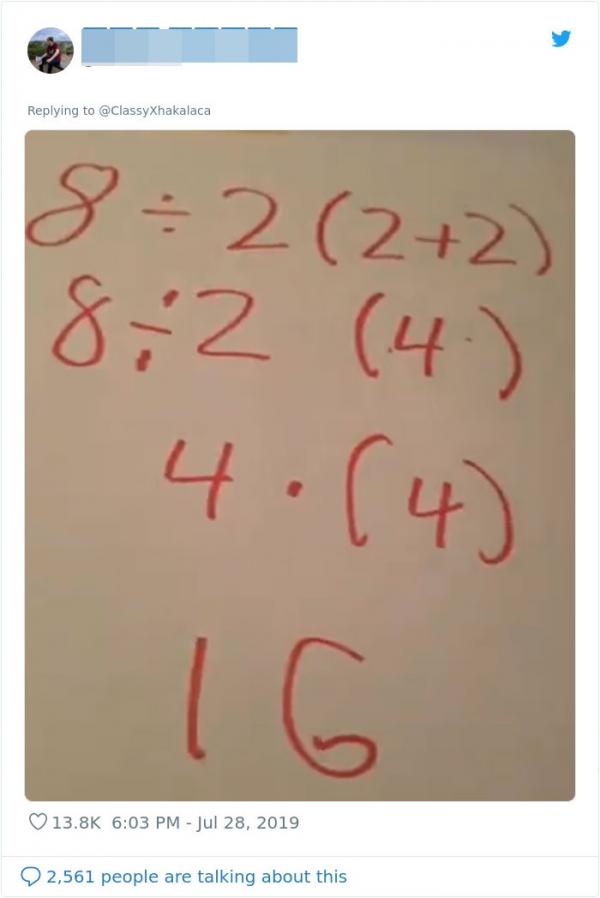 Replying to @ClassyXhakalaca
8 ÷ 2 (2+2)
8 ÷ 2 (4)
4 · (4)
16
13.8K 6:03 PM - Jul 28, 2019
2,561 people are talking about this